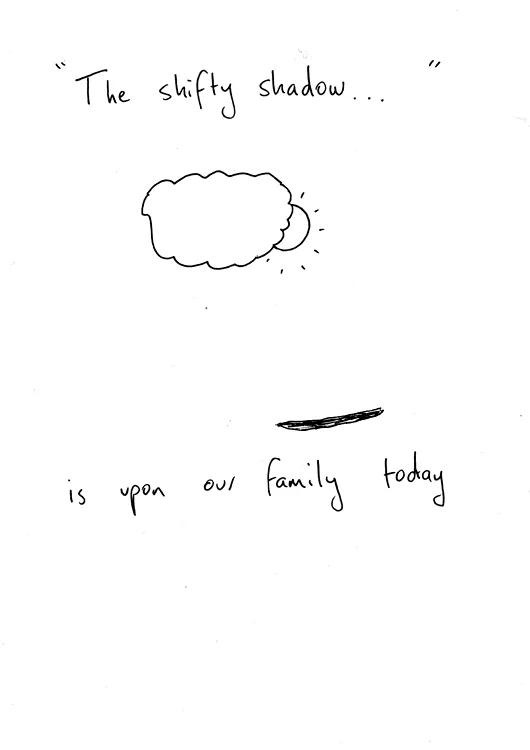 "The shifty shadow... "
is upon our family today